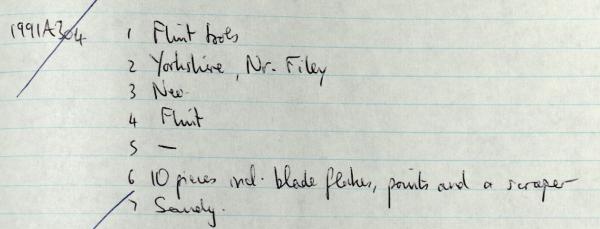 1991A304 1 Flint tools
2 Yorkshire, Nr. Filey
3 Neo.
4 Flint
5 —
6 10 pieces incl. blade flakes, points and a scraper
7 Sandy.